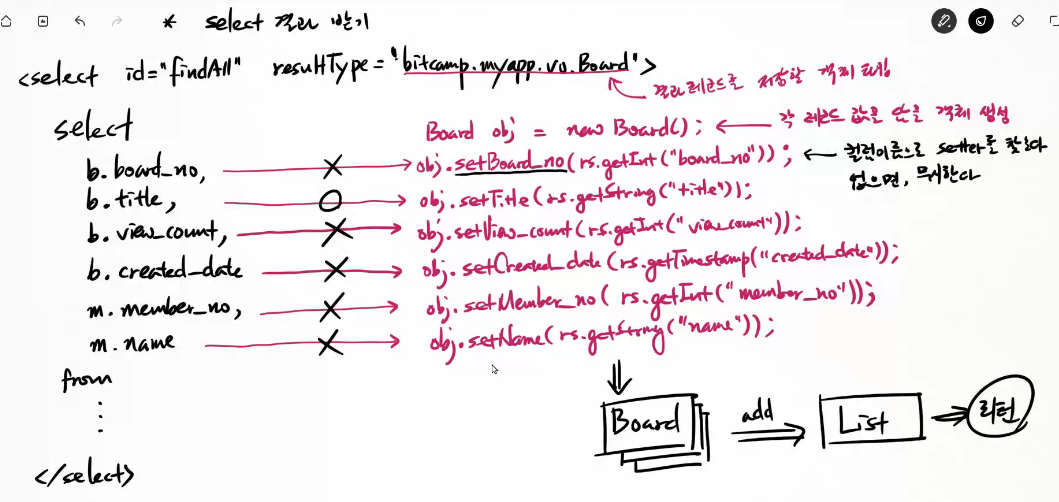 * select 결과 받기
<select id="findAll" resultType="bitcamp.myapp.vo.Board">
결과 레코드를 저장할 객체 타입
select
Board obj = new Board(); ← 각 레코드 값을 담을 객체 생성
b.board_no, X obj.setBoard_no(rs.getInt("board_no")); ← 컬럼이름으로 setter를 찾는다
없으면, 무시한다
b.title, O obj.setTitle(rs.getString("title"));
b.view_count, X obj.setView_count(rs.getInt("view_count"));
b.created_date X obj.setCreated_date(rs.getTimestamp("created_date"));
m.member_no, X obj.setMember_no(rs.getInt("member_no"));
m.name X obj.setName(rs.getString("name"));
from
⋮
Board add List 리턴
</select>